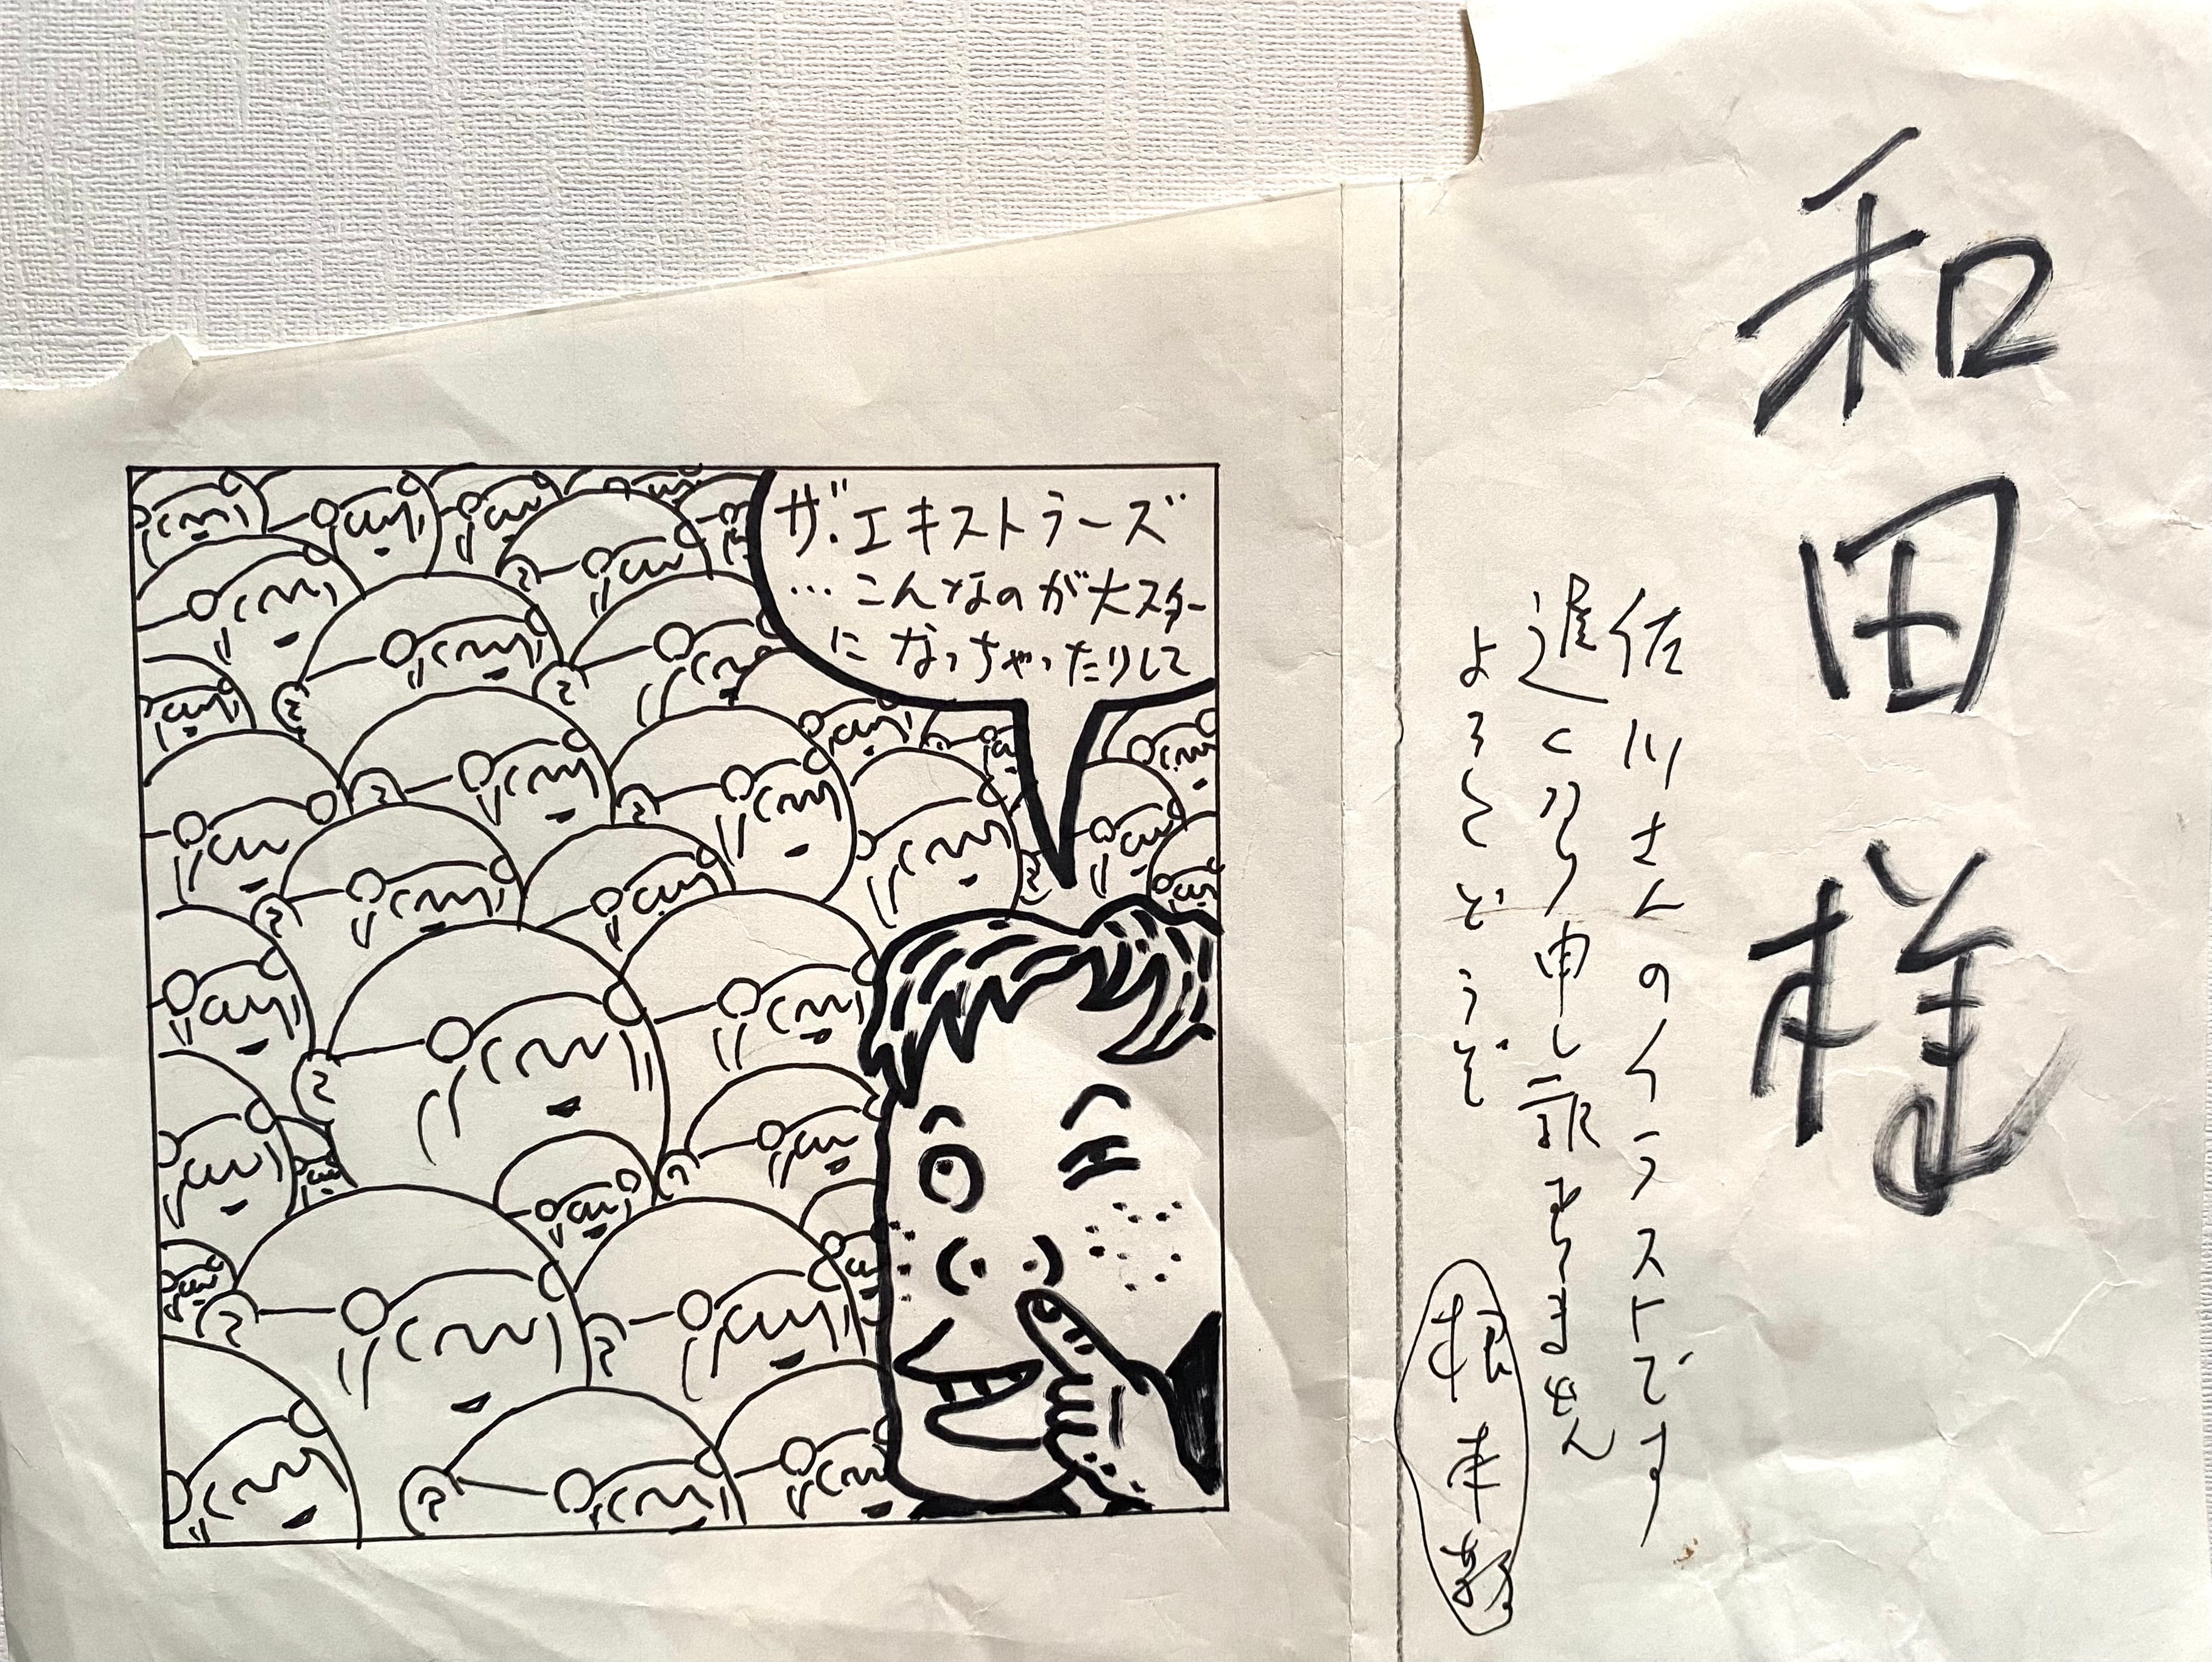 和田様
佐川さんのイラストです
遅くなり申し訳ありません
よろしくどうぞ
ザ・エキストラーズ
…こんなのが大スター
になっちゃったりして